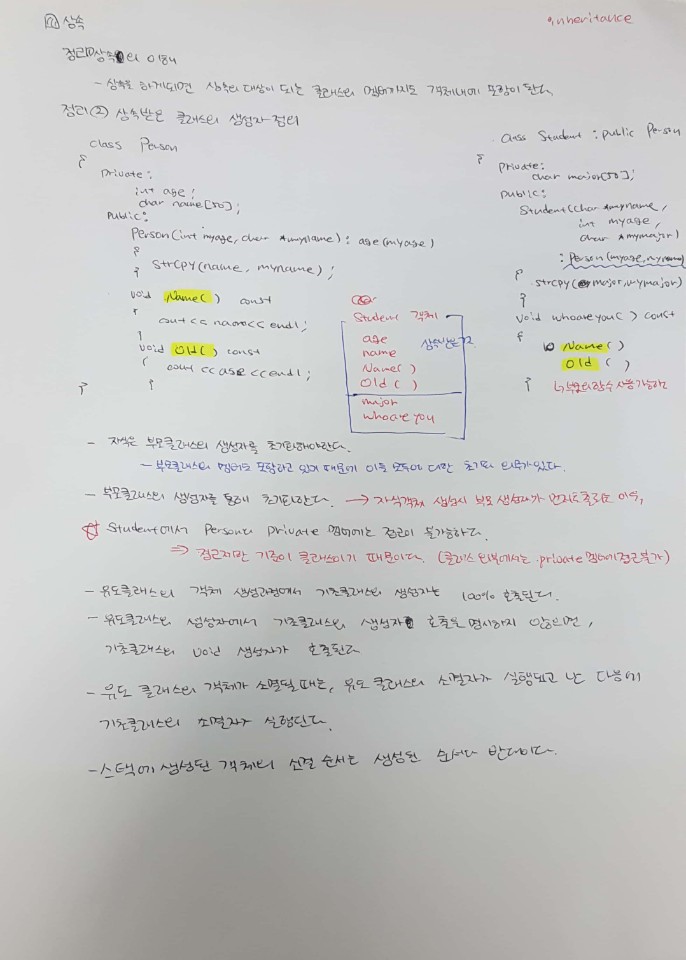 상속
inheritance
정리① 상속의 이해
- 상속을 하게되면 상속의 대상이 되는 클래스의 멤버까지도 객체내에 포함이 된다.
정리② 상속받은 클래스의 생성자 정의
class Person
{
private:
int age;
char name[50];
public:
Person(int myage, char *myname) : age(myage)
{
strcpy(name, myname);
}
void Name( ) const
{
cout<<name<<endl;
}
void Old( ) const
{
cout<<age<<endl;
}
}
Student 객체
age
name
Name( )
Old ( )
상속받는거
major
whoareyou
class Student : public Person
{
private:
char major[50];
public:
Student(char *myname,
int myage,
char *mymajor)
: Person(myage,myname)
{
strcpy(major,mymajor)
}
void whoareyou( ) const
{
Name( )
Old ( )
}
↳부모의함수사용가능하고
- 자식은 부모클래스의 생성자를 초기화해야한다.
- 부모클래스의 멤버도 포함하고 있기 때문에 이들 모두에 대한 초기화 의무가있다.
- 부모클래스의 생성자를 통해 초기화한다. → 자식객체 생성시 부모 생성자가 먼저호출되는 이유,
☆ Student에서 Person의 private 멤버에는 접근이 불가능하다.
⇒ 접근제한 기준이 클래스이기 때문이다. (클래스 외부에서는 private멤버에접근불가)
- 유도클래스의 객체 생성과정에서 기초클래스의 생성자는 100% 호출된다.
- 유도클래스의 생성자에서 기초클래스의 생성자 호출을 명시하지 않으면,
기초클래스의 void 생성자가 호출된다
- 유도 클래스의 객체가 소멸될때는, 유도 클래스의 소멸자가 실행되고 난 다음에
기초클래스의 소멸자가 실행된다.
- 스택에 생성된 객체의 소멸 순서는 생성된 순서와 반대이다.